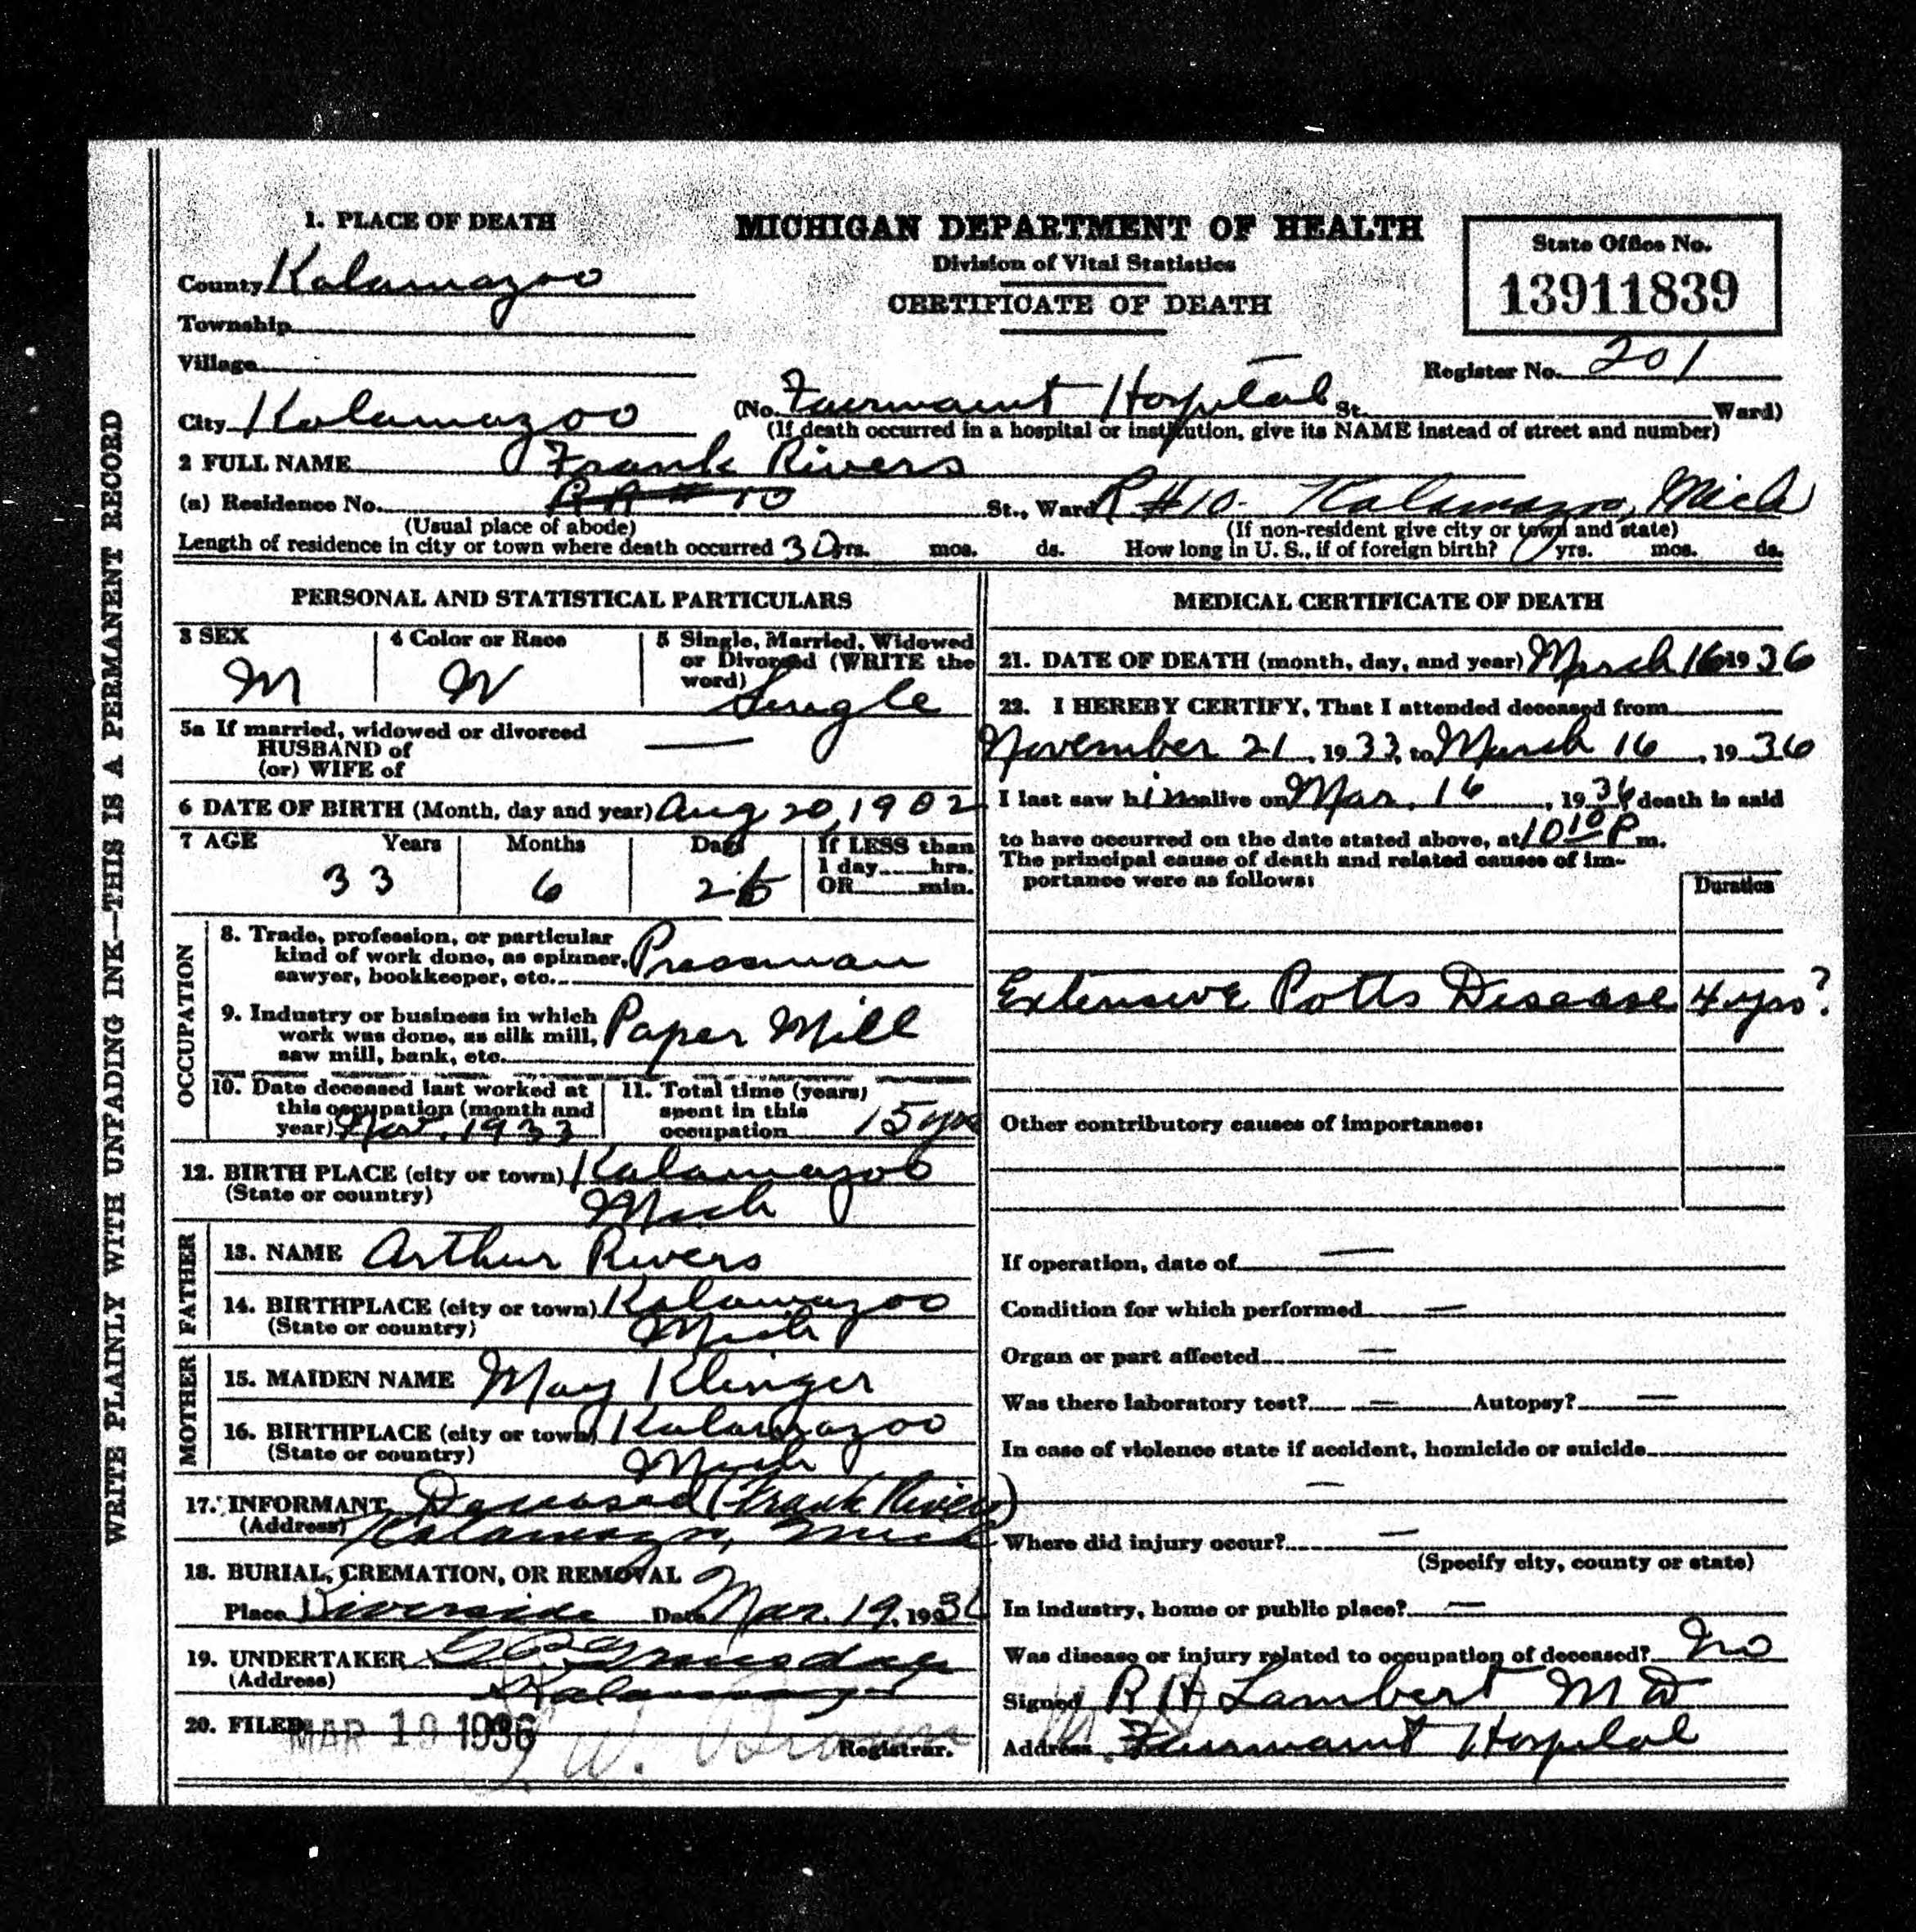 WRITE PLAINLY WITH UNFADING INK—THIS IS A PERMANENT RECORD
MICHIGAN DEPARTMENT OF HEALTH
Division of Vital Statistics
CERTIFICATE OF DEATH
State Office No.
13911839
Register No. 201
1. PLACE OF DEATH
County Kalamazoo
Township
Village
City Kalamazoo (No. Fairmount Hospital St. Ward)
(If death occurred in a hospital or institution, give its NAME instead of street and number)
2 FULL NAME Frank Rivers
(a) Residence No. RR # 10 St., Ward R #10- Kalamazoo, Mich
(Usual place of abode) (If non-resident give city or town and state)
Length of residence in city or town where death occurred 30 yrs. mos. ds. How long in U. S., if of foreign birth? yrs. mos. ds.
PERSONAL AND STATISTICAL PARTICULARS
3 SEX M
4 Color or Race W
5 Single, Married, Widowed or Divorced (WRITE the word) Single
5a If married, widowed or divorced
HUSBAND of
(or) WIFE of —
6 DATE OF BIRTH (Month, day and year) Aug 20, 1902
7 AGE Years Months Days If LESS than
1 day hrs.
OR min.
33 6
OCCUPATION
8. Trade, profession, or particular
kind of work done, as spinner,
sawyer, bookkeeper, etc. Pressman
9. Industry or business in which
work was done, as silk mill,
saw mill, bank, etc. Paper Mill
10. Date deceased last worked at
this occupation (month and
year) Nov. 1933
11. Total time (years)
spent in this
occupation 15 yrs
12. BIRTH PLACE (city or town) Kalamazoo
(State or country) Mich
FATHER
13. NAME Arthur Rivers
14. BIRTHPLACE (city or town) Kalamazoo
(State or country) Mich
MOTHER
15. MAIDEN NAME May Klinger
16. BIRTHPLACE (city or town) Kalamazoo
(State or country) Mich
17. INFORMANT Deceased (Frank Rivers)
(Address) Kalamazoo, Mich
18. BURIAL, CREMATION, OR REMOVAL
Place Riverside Date Mar. 19, 1936
19. UNDERTAKER
(Address) Kalamazoo
20. FILED MAR 19 1936 W. Brown
Registrar.
MEDICAL CERTIFICATE OF DEATH
21. DATE OF DEATH (month, day, and year) March 16 1936
22. I HEREBY CERTIFY, That I attended deceased from
November 21, 1933, to March 16, 1936
I last saw him alive on Mar. 16, 1936 death is said
to have occurred on the date stated above, at 10 10 P m.
The principal cause of death and related causes of im-
portance were as follows:
Duration
Extensive Potts Disease 4 yrs?
Other contributory causes of importance:
If operation, date of —
Condition for which performed —
Organ or part affected —
Was there laboratory test? — Autopsy? —
In case of violence state if accident, homicide or suicide
—
Where did injury occur? —
(Specify city, county or state)
In industry, home or public place? —
Was disease or injury related to occupation of deceased? No
Signed R H Lambert M D
Address Fairmount Hospital